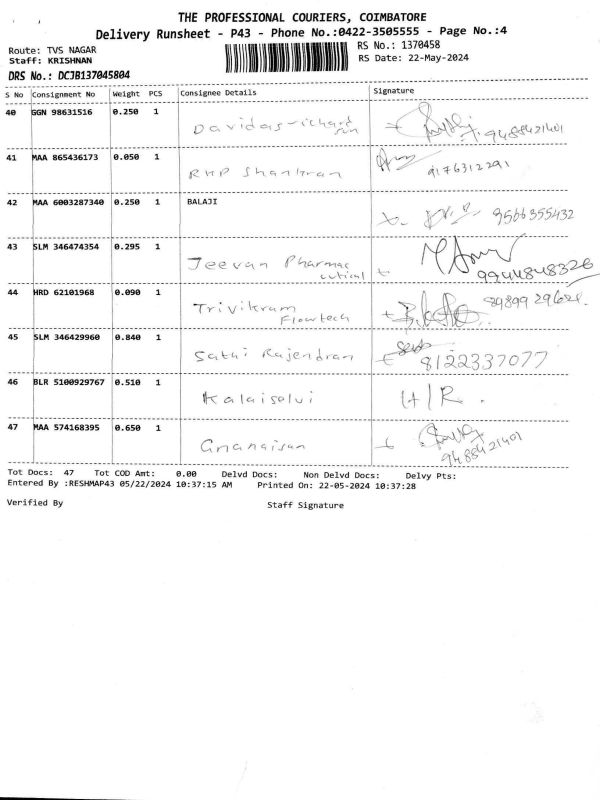 THE PROFESSIONAL COURIERS, COIMBATORE
Delivery Runsheet - P43 - Phone No.:0422-3505555 - Page No.:4
Route: TVS NAGAR RS No.: 1370458
Staff: KRISHNAN RS Date: 22-May-2024
DRS No.: DCJB137045804
S No Consignment No Weight PCS Consignee Details Signature
40 GGN 98631516 0.250 1 Davidas-richard 9488421401
sun
41 MAA 865436173 0.050 1 RHP Shankran 9176312291
42 MAA 6003287340 0.250 1 BALAJI 9566355432
43 SLM 346474354 0.295 1 Jeevan Pharmac
cutical 9944848326
44 HRD 62101968 0.090 1 Trivikram
Flowtech
45 SLM 346429960 0.840 1 Sathi Rajendran 8122337077
46 BLR 5100929767 0.510 1 Kalaiselvi H/R.
47 MAA 574168395 0.650 1 Gnanaisan 9488421401
Tot Docs: 47 Tot COD Amt: 0.00 Delvd Docs: Non Delvd Docs: Delvy Pts:
Entered By :RESHMAP43 05/22/2024 10:37:15 AM Printed On: 22-05-2024 10:37:28
Verified By Staff Signature